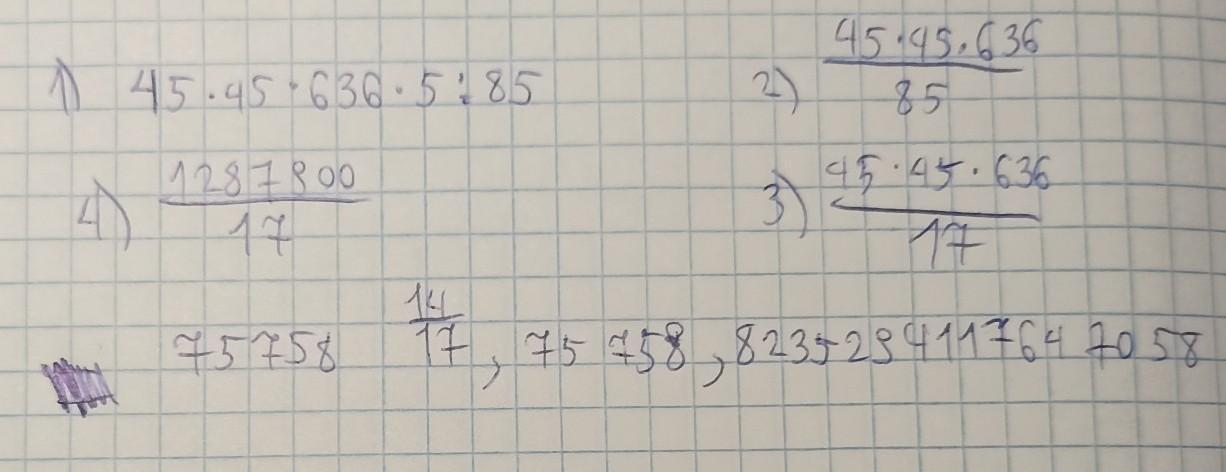 1) 45·45·636·5:85
2) 45·45·636/85
4) 1287900/17
3) 45·45·636/17
75758 14/17, 75 758,8235294117647058